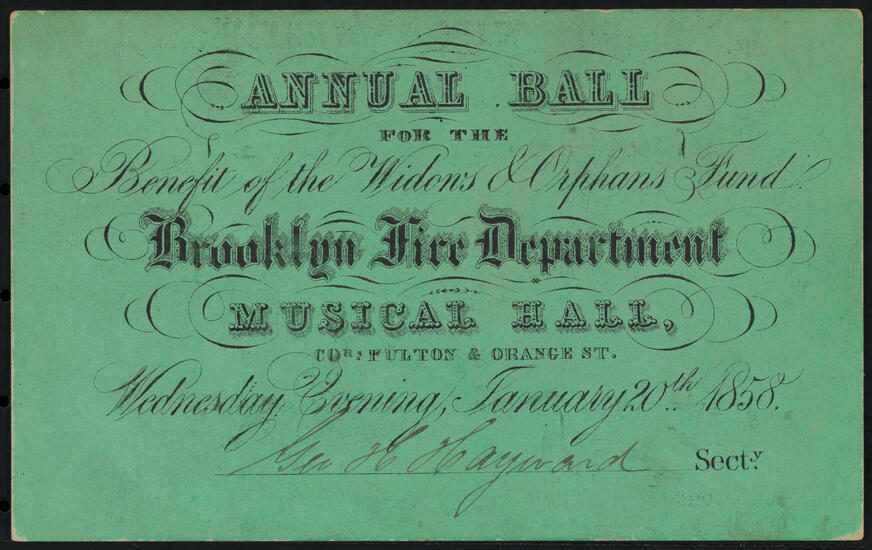 ANNUAL BALL
FOR THE
Benefit of the Widows & Orphans Fund.
Brooklyn Fire Department
MUSICAL HALL,
CORS FULTON & ORANGE ST.
Wednesday Evening, January 20th 1858.
Geo H Hayward Secty.